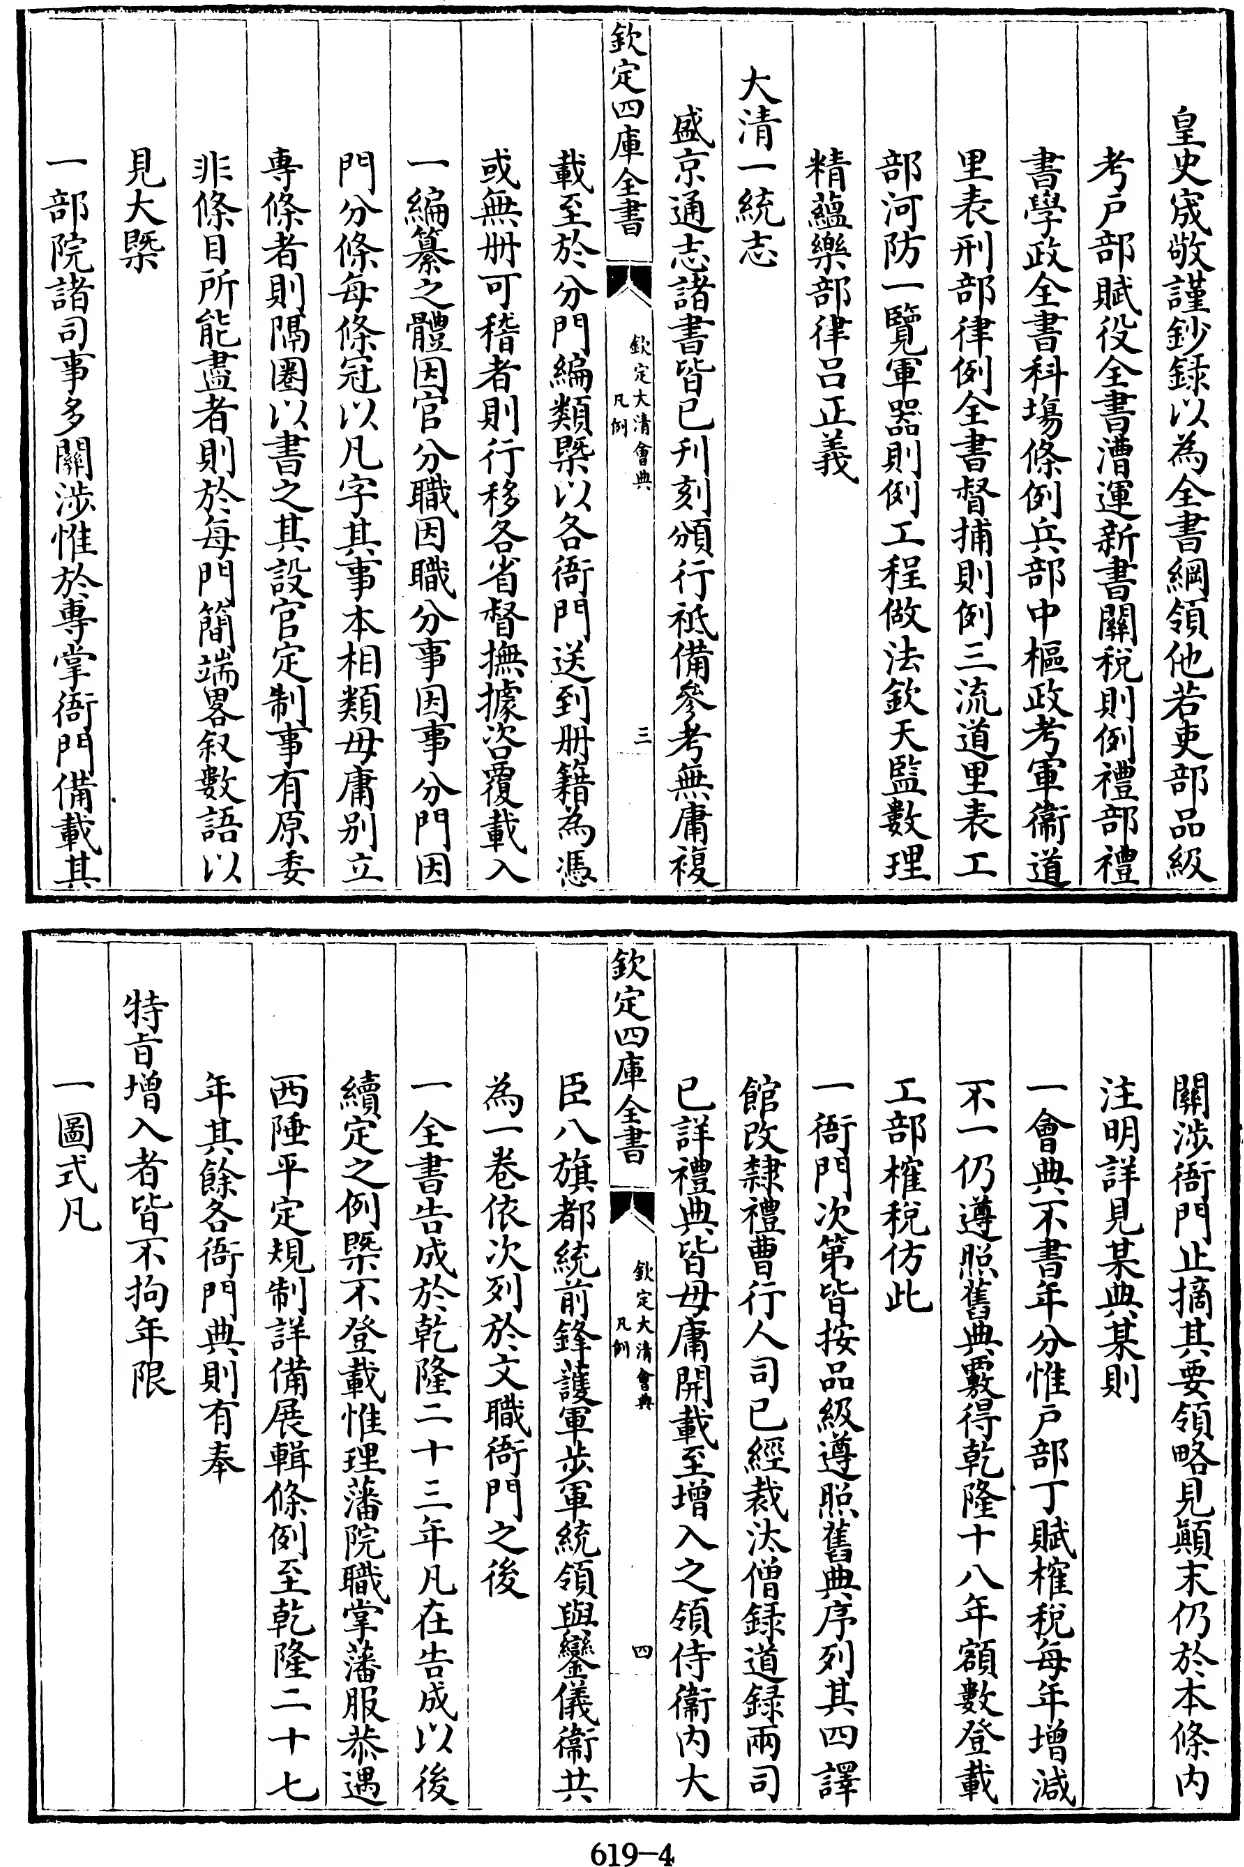 皇史宬敬謹鈔録以為全書綱領他若吏部品級
考戶部賦役全書漕運新書關税則例禮部禮
書學政全書科場條例兵部中樞政考軍衞道
里表刑部律例全書督捕則例三流道里表工
部河防一覽軍器則例工程做法欽天監數理
精藴樂部律吕正義
大清一統志
盛京通志諸書皆已刊刻頒行祗備參考無庸複
欽定四庫全書
欽定大清會典
凡例
三
載至於分門編類槩以各衙門送到册籍為憑
或無册可稽者則行移各省督撫據咨覆載入
一編纂之體因官分職因職分事因事分門因
門分條每條冠以凡字其事本相類毋庸别立
專條者則隔圏以書之其設官定制事有原委
非條目所能盡者則於每門簡端畧叙數語以
見大槩
一部院諸司事多關涉惟於專掌衙門備載其
關涉衙門止摘其要領略見顛末仍於本條内
注明詳見某典某則
一會典不書年分惟戶部丁賦榷税每年增減
不一仍遵照舊典覈得乾隆十八年額數登載
工部榷税仿此
一衙門次第皆按品級遵照舊典序列其四譯
館改隸禮曹行人司已經裁汰僧録道録兩司
已詳禮典皆毋庸開載至增入之領侍衞内大
欽定四庫全書
欽定大清會典
凡例
四
臣八旗都統前鋒護軍步軍統領與鑾儀衞共
為一卷依次列於文職衙門之後
一全書告成於乾隆二十三年凡在告成以後
續定之例槩不登載惟理藩院職掌藩服恭遇
西陲平定規制詳備展輯條例至乾隆二十七
年其餘各衙門典則有奉
特旨增入者皆不拘年限
一圖式凡
619-4